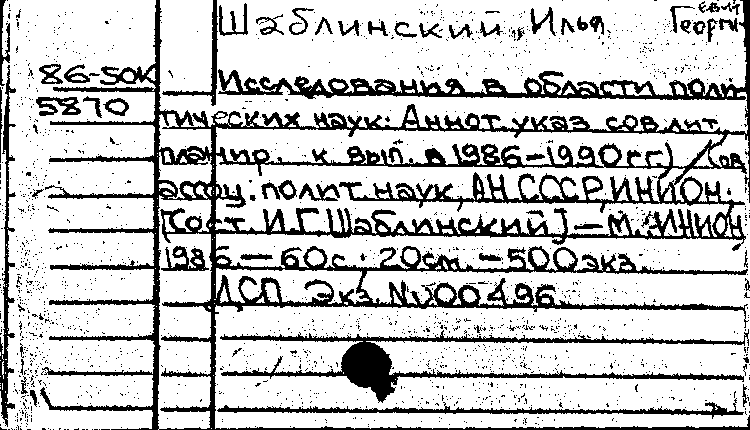 Шаблинский, Илья Георгиевич
86-50К Исследования в области поли-
5870 тических наук: Аннот. указ сов. лит.,
планир. к вып. в 1986-1990 гг.) / Сов.
ассоц. полит. наук, АН СССР, ИНИОН;
[Сост. И.Г. Шаблинский]. — М.: ИНИОН,
1986. — 60 с.; 20 см. — 500 экз.
ДСП Экз. №00496